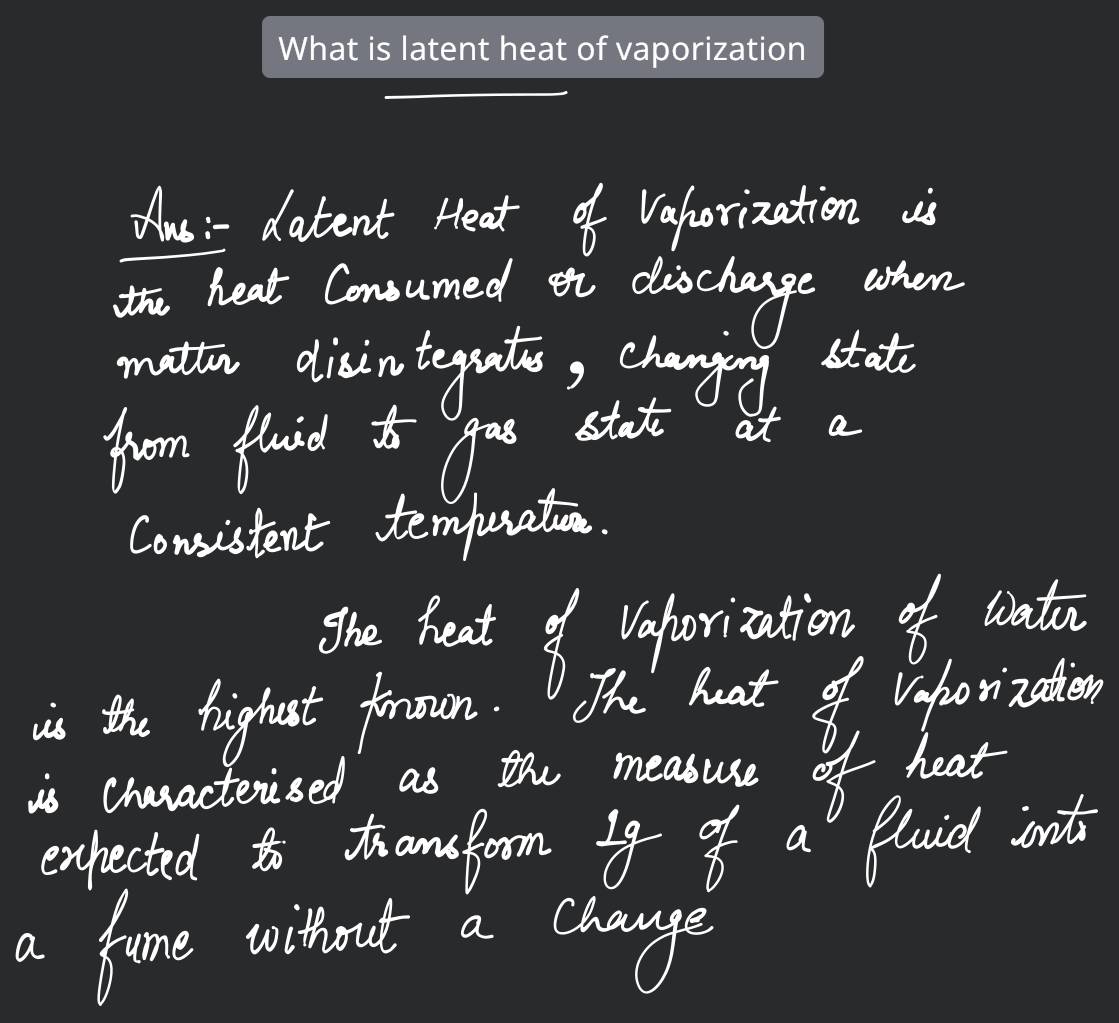 What is latent heat of vaporization
Ans:- Latent Heat of Vaporization is
the heat Consumed or discharge when
matter disintegrates, changing state
from fluid to gas state at a
Consistent temperature.
The heat of Vaporization of Water
is the highest known. The heat of Vaporization
is characterised as the measure of heat
expected to transform 1g of a fluid into
a fume without a Change